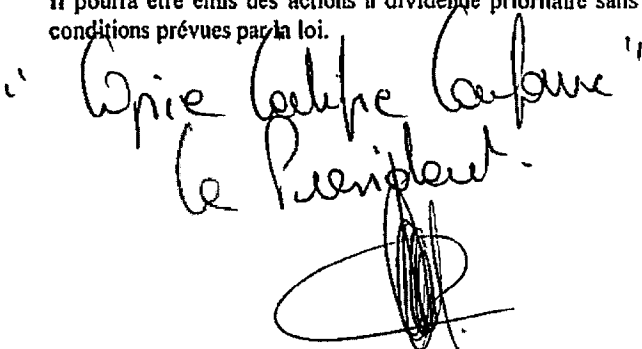 Il pourra être émis des actions à dividende prioritaire sans
conditions prévues par la loi.
" Copie Certifiée Conforme "
Le Président.